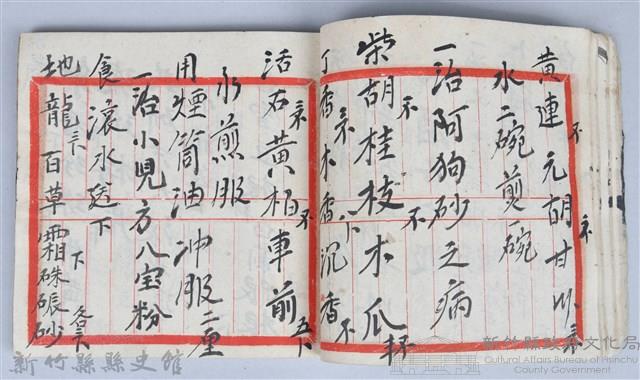 黄連 元胡 甘州
水二碗煎一碗
一治阿狗砂之病
柴胡 桂枝 木瓜
丁香 木香 沉香
活石 黄柏 車前
水煎服
用煙筒油冲服二厘
一治小兒方八宝粉
食滾水送下
地龍 百草霜 硃砂
新竹縣縣史館
新竹縣政府文化局
Cultural Affairs Bureau of Hsinchu
County Government